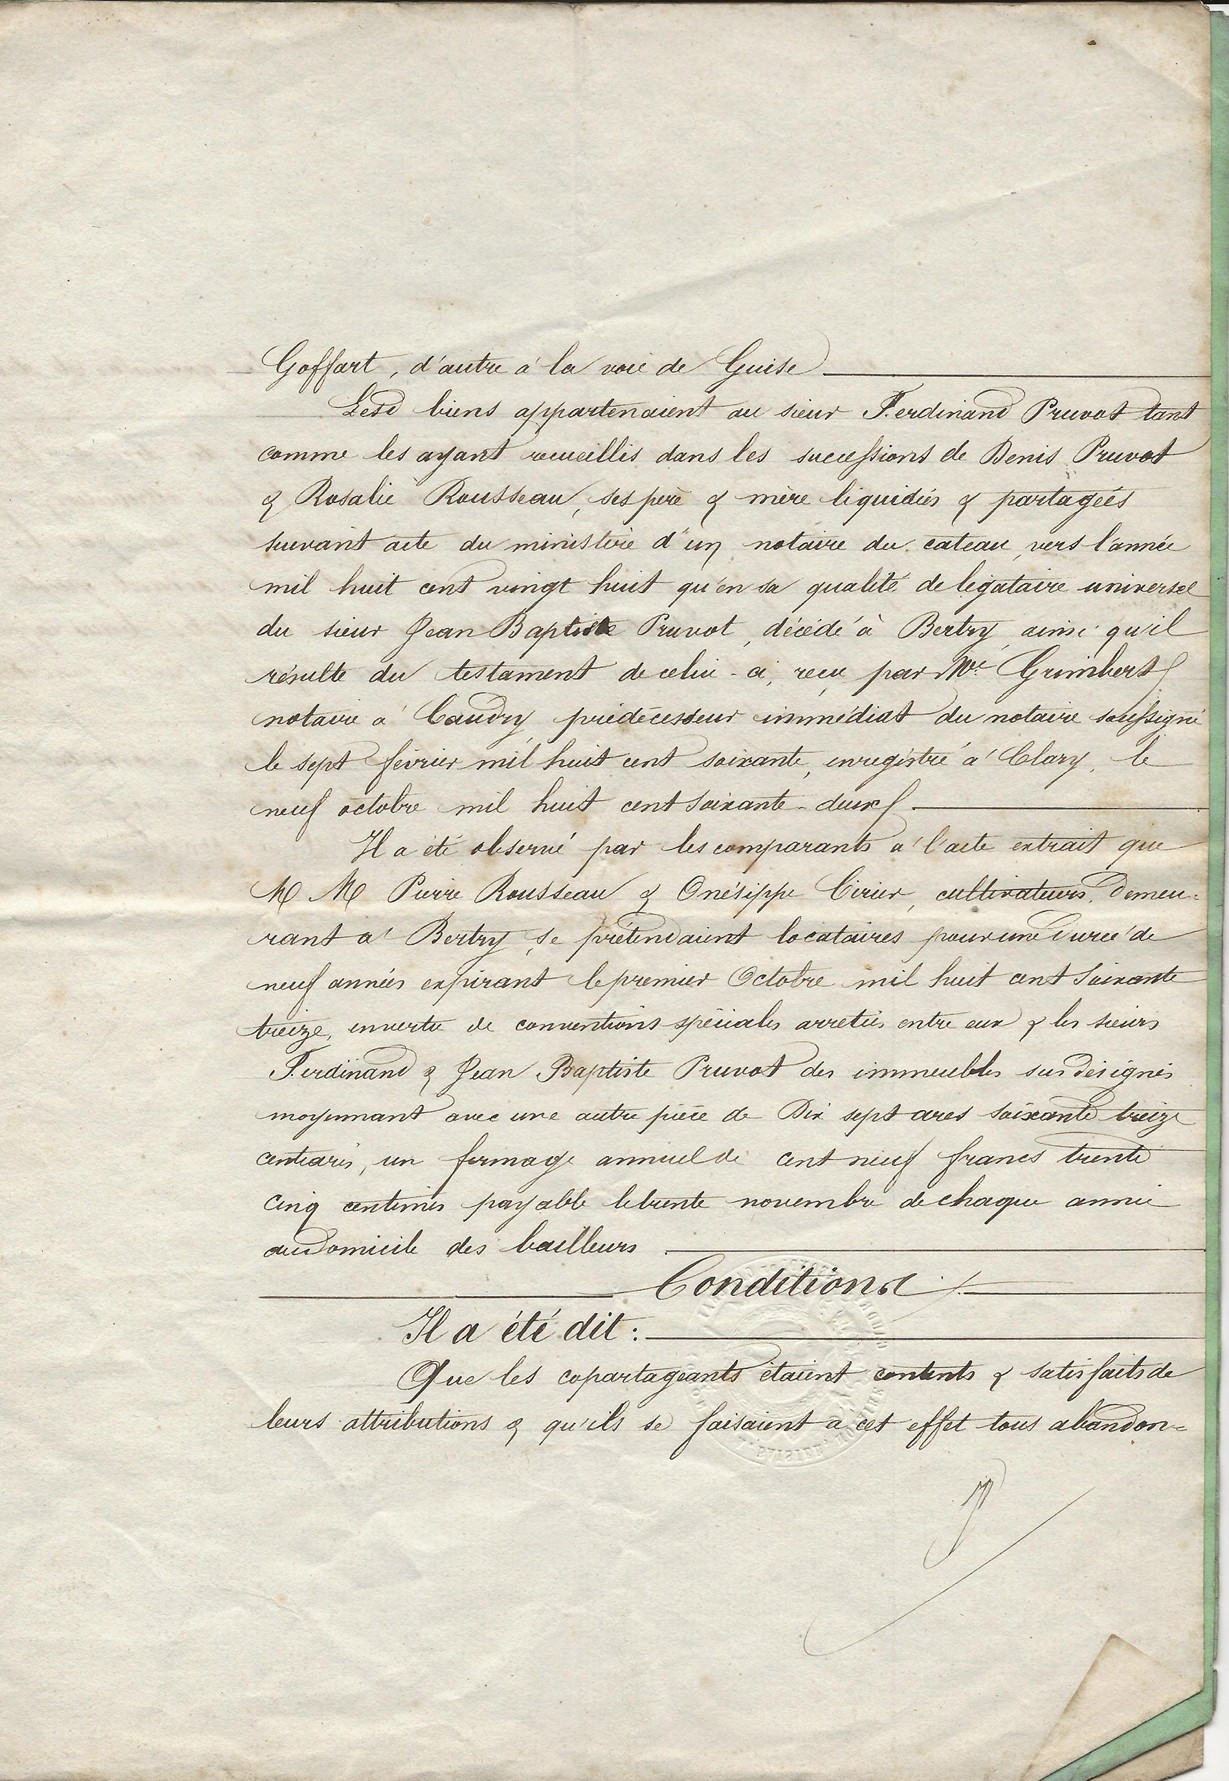 Goffart, d'autre à la voie de Guise
Lesd biens appartenaient au sieur Ferdinand Pruvot tant
comme les ayant recueillis dans les successions de Denis Pruvot
& Rosalie Rousseau, ses père & mère liquidées & partagées
suivant acte du ministère d'un notaire du cateau vers l'année
mil huit cent vingt huit qu'en sa qualité de légataire universel
du sieur Jean Baptiste Pruvot, décédé à Bertry ainsi qu'il
résulte du testament de celui-ci, reçu par Me Grimbert
notaire à Caudry, prédécesseur immédiat du notaire soussigné
le sept février mil huit cent soixante, enregistré à Clary, le
neuf octobre mil huit cent soixante-deux
Il a été observé par les comparants à l'acte extrait que
M M Pierre Rousseau & Onésippe Cirier, cultivateurs, demeu=
rant à Bertry, se prétendaient locataires pour une durée de
neuf années expirant le premier Octobre mil huit cent soixante
treize, en vertu de conventions spéciales arretées entre eux & les sieurs
Ferdinand & Jean Baptiste Pruvot des immeubles sus désignés
moyennant avec une autre pièce de Dix sept ares soixante treize
centiares, un fermage annuel de cent neuf francs trente
cinq centimes payable le trente novembre de chaque année
au domicile des bailleurs
Conditions
Il a été dit :
Que les copartageants étaient contents & satisfaits de
leurs attributions & qu'ils se faisaient à cet effet tous abandon=